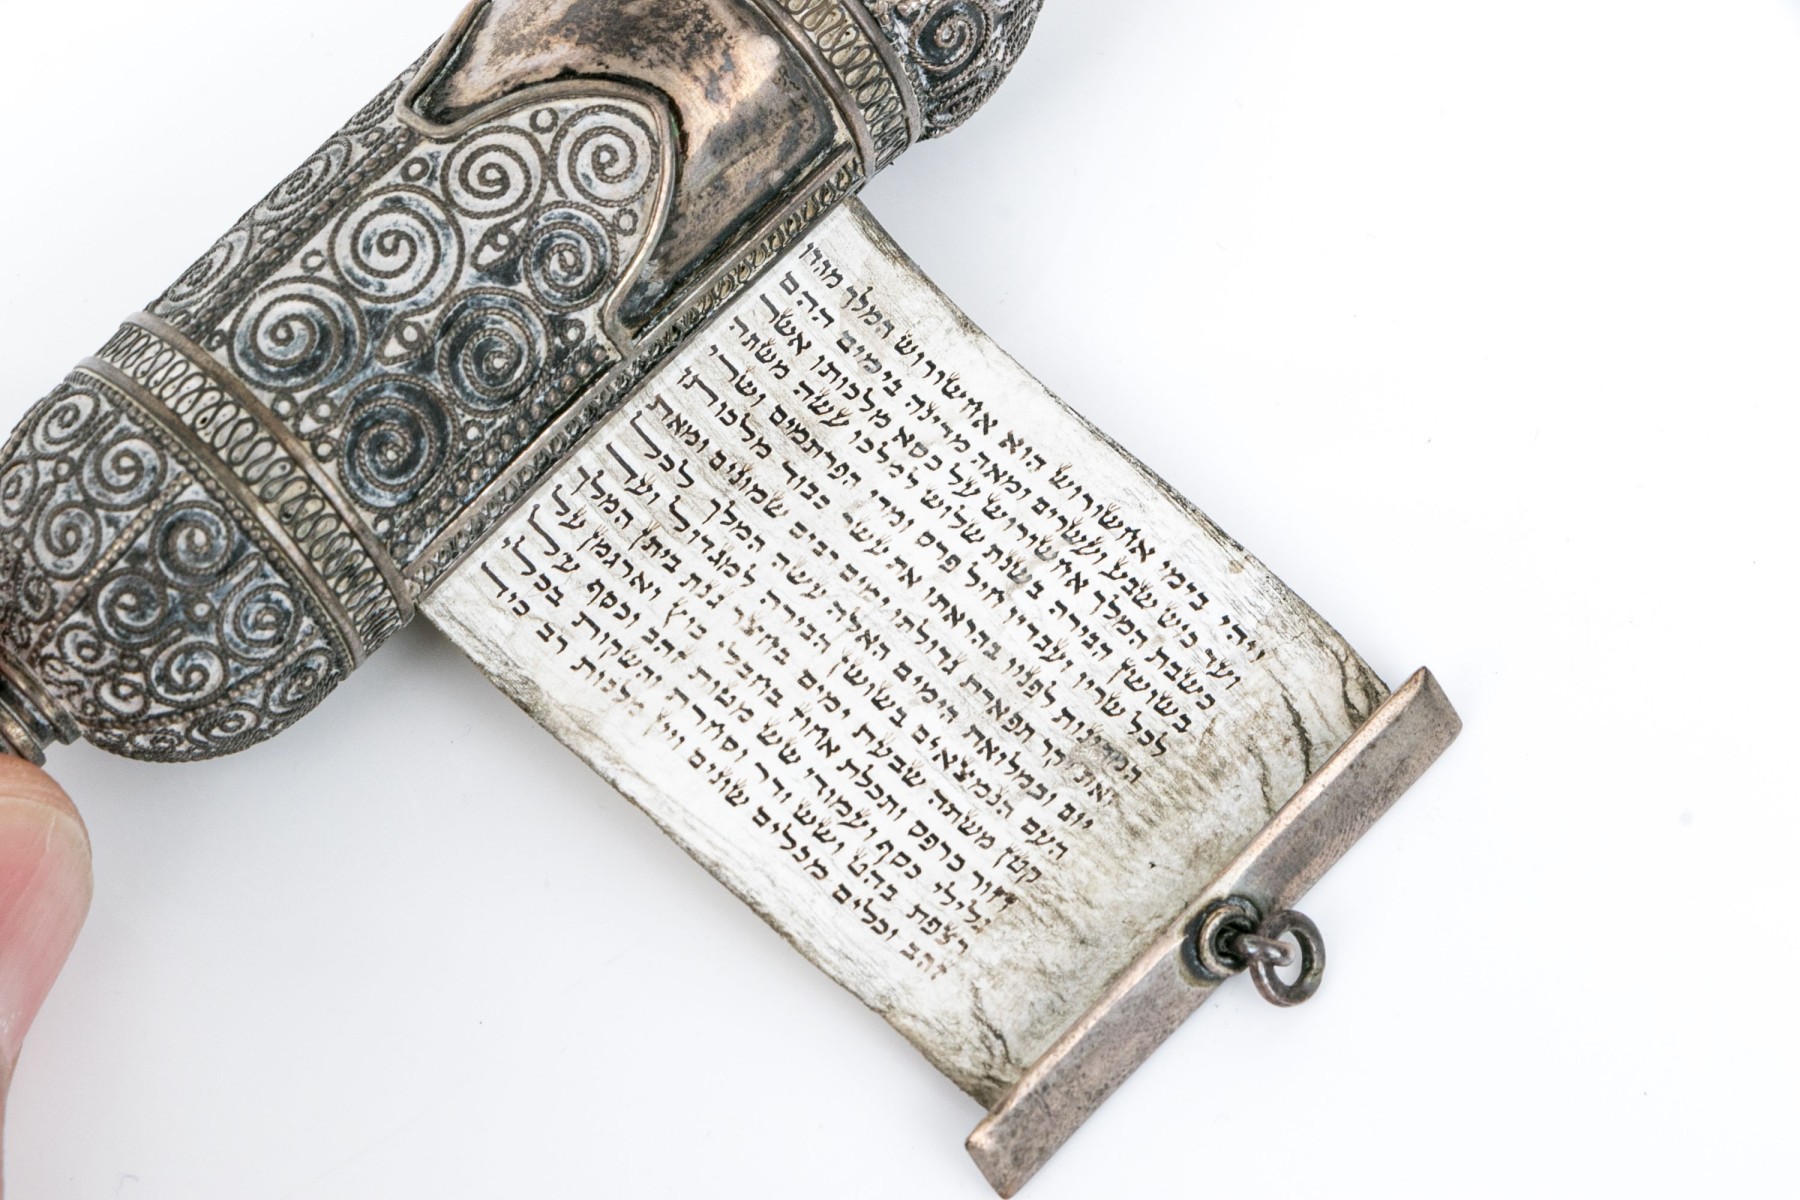 ויהי בימי אחשורוש הוא אחשורוש המלך מהדו
ועד כוש שבע ועשרים ומאה מדינה בימים ההם
כשבת המלך אחשורוש על כסא מלכותו אשר
בשושן הבירה בשנת שלוש למלכו עשה משתה
לכל שריו ועבדיו חיל פרס ומדי הפרתמים ושרי
המדינות לפניו בהראתו את עשר כבוד מלכותו
ואת יקר תפארת גדולתו ימים רבים שמונים ומאת
יום ובמלואת הימים האלה עשה המלך לכל
העם הנמצאים בשושן הבירה למגדול ועד
קטן משתה שבעת ימים בחצר גנת ביתן המלך
חור כרפס ותכלת אחוז בחבלי בוץ וארגמן על
גלילי כסף ועמודי שש מטות זהב וכסף על
רצפת בהט ושש ודר וסחרת והשקות בכלי
זהב וכלים מכלים שונים ויין מלכות רב כיד